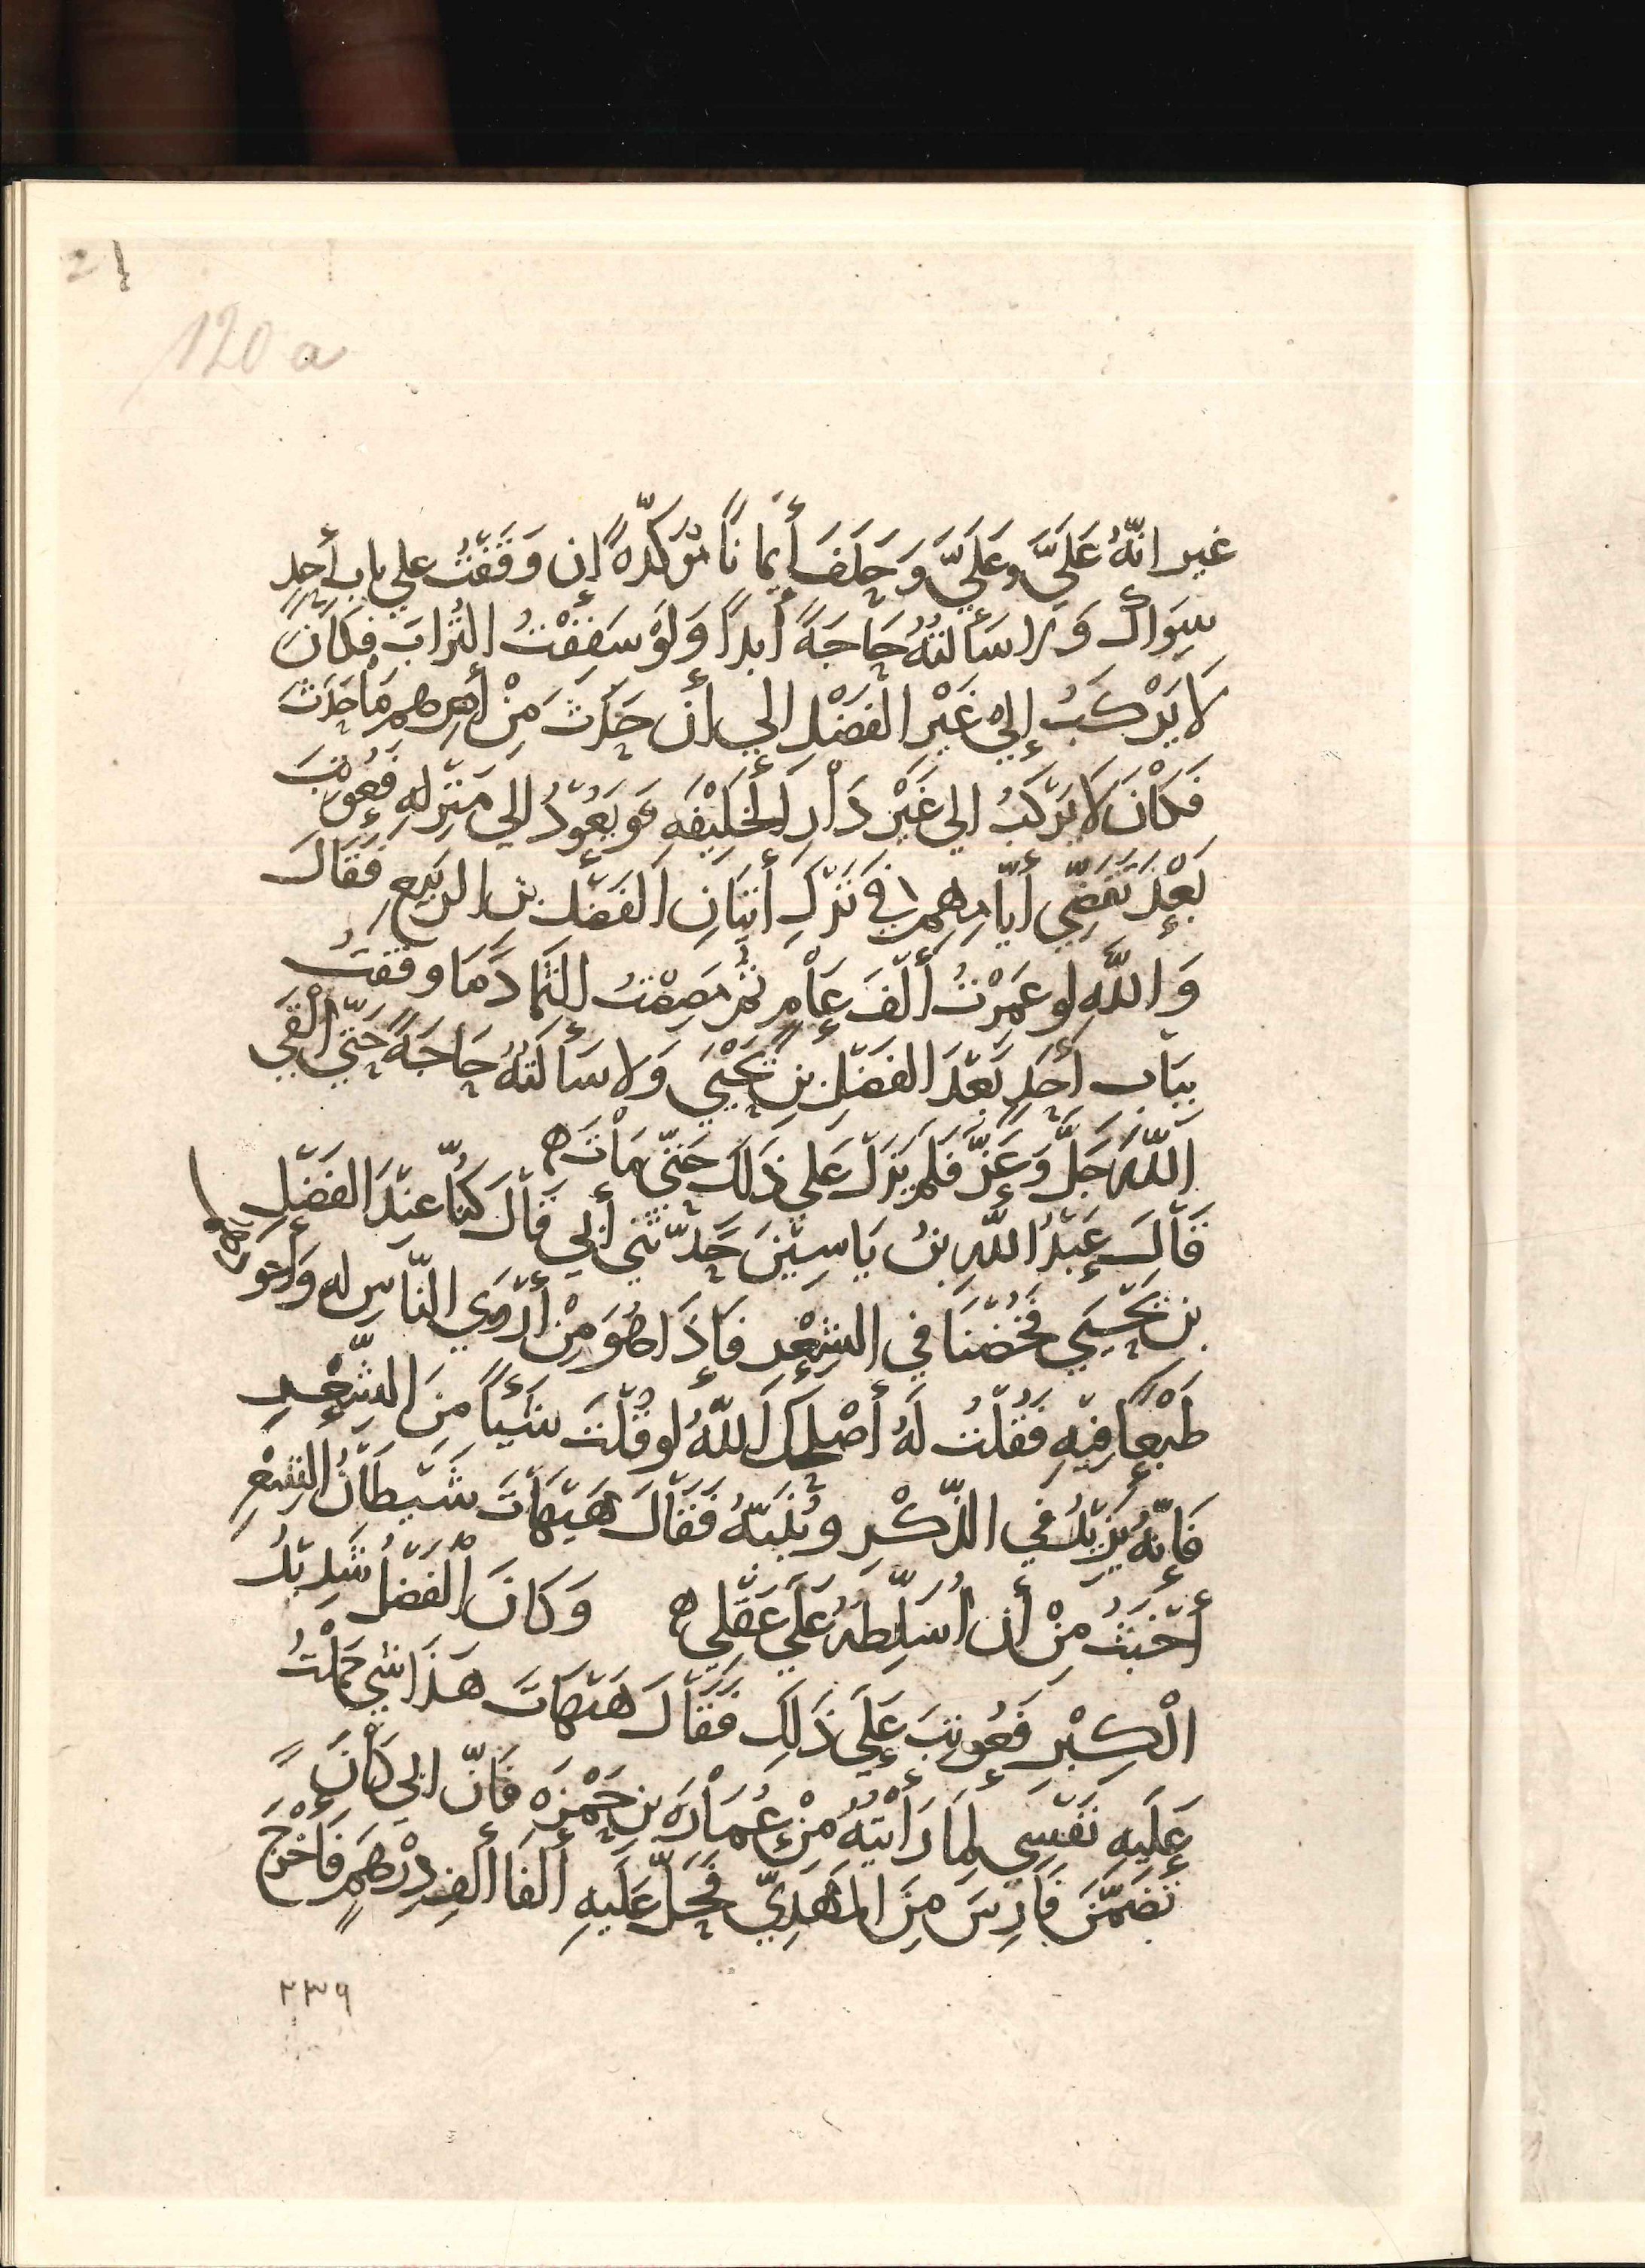 120 a
غير انّهُ عَلَيَّ وعَلَيَّ وَحَلَفَ أَيمانًا مُؤكَّدةً إن وَقَفْتُ علي باب أحدٍ
سِوَاكَ وَلا سَألتُهُ حَاجَةً أبدًا وَلَوْ سَفِفْتُ التُرابَ فكَانَ
لَا يَرْكَبُ إليٰ غَيْرِ الفَضْلِ الي أن حَدَثَ مِنْ أمرِهم مَا حَدَثَ
فكَانَ لَا يَرْكَبُ الي غَيْرِ دَارِ الْخَلِيْفَةِ وَيَعُوْدُ الي مَنْزِلِهِ فعُوْتِبَ
بَعْدَ تَقَضِّي أيّامِهِم في تَرْكِ أتيَانِ الفَضْلِ بنِ الرّبيعِ فَقَالَ
وَاللّهِ لو عُمِّرْتُ ألْفَ عَامٍ ثم مَصِصْتُ الثِّمَادَ مَا وقفتُ
بِبَابِ أحَدٍ بَعْدَ الفَضْلِ بنِ يَحْيَي وَلا سَألتُهُ حَاجَةً حَتّي ألقَي
اللّهَ جَلَّ وَعَزَّ فلم يَزَلْ عَلي ذَلِكَ حَتّي مَاتَ ه
قَالَ عَبْدُ اللّهِ بنُ يَاسِيْنَ حَدّثَني أبي قالَ كنّا عِنْدَ الفَضْلِ
بن يَحْيَي فخُضْنَا في الشِعْرِ فإذَا هُوَ مِنْ أرْوَي النّاسِ له وَأجودِهِم
طَبْعًا فِيْهِ فقُلْتُ لَهُ أصْلَحَكَ اللّهُ لو قُلْتَ شَيْأً مِنَ الشِّعْرِ
فَإنّهُ يَزِيْدُ في الذِّكْرِ ويُنَبِّهُ فَقَالَ هَيْهَاتَ شَيْطَانُ الشِعْرِ
أخْبَثُ مِنْ أن أُسَلِّطَهُ عَلَي عَقْلِي ه وَكَانَ الْفَضْلُ شَدِيْدُ
الْكِبْرِ فَعُوْتِبَ عَلَي ذَلِكَ فَقَالَ هَيْهَاتَ هَذَا شي حَمَلْتُ
عَلَيهِ نَفْسِي لِمَا رَأيْتُهُ مِنْ عُمَارَةَ بنِ حَمْزَةَ فَإنّ ابي كَانَ
تَضَمَّنَ فَارِسَ مِنَ المَهْدِيّ فَحَلَّ عَلَيهِ ألفَا ألفِ دِرْهَمٍ فَأخْرَجَ
٢٣٩